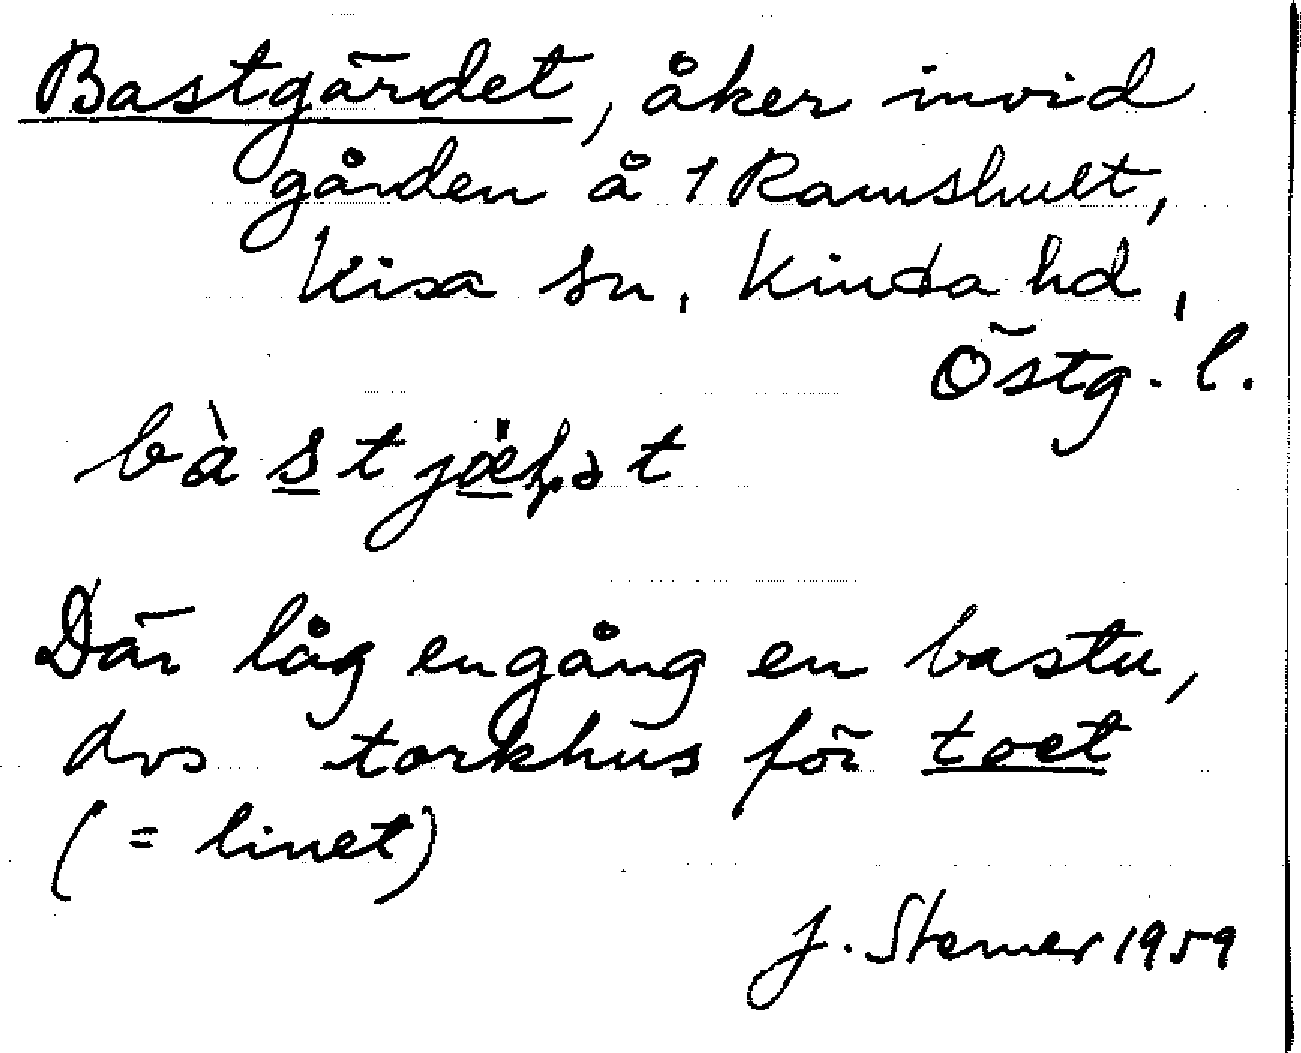 Bastgärdet, åker invid
gården å 1 Ramshult,
Kisa sn, Kinda hd,
Östg. l.
Där låg engång en bastu,
dvs torkhus för toet
(= linet)
J. Sterner 1959